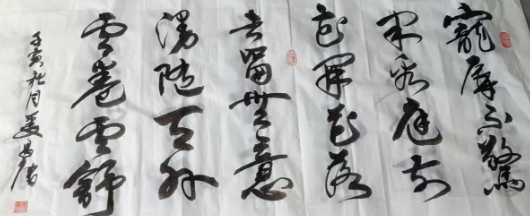 寵辱不驚
看庭前
花開花落
去留無意
漫隨天外
雲卷雲舒
壬寅秋月